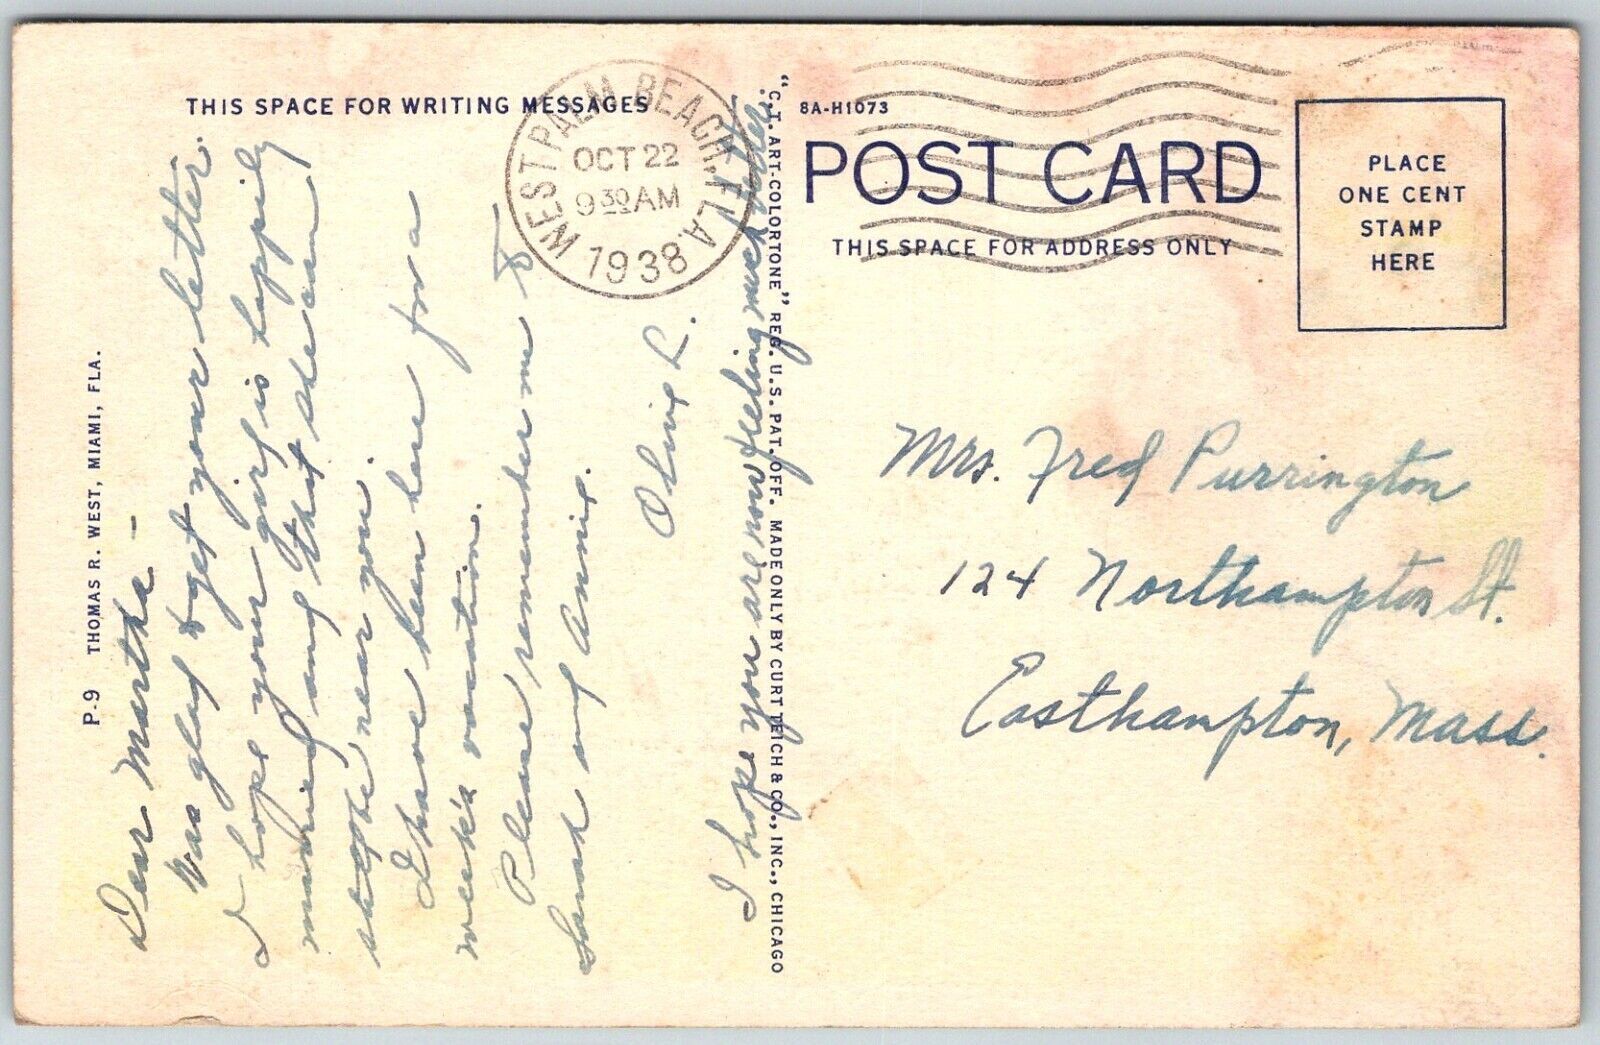 THIS SPACE FOR WRITING MESSAGES
WEST PALM BEACH, FLA.
OCT 22
9 30 AM
1938
Dear Martha -
Was glad to get your letter.
I hope your girl is happily
married and that she can
stope near you.
I have been here for a
week's vacation.
Please remember me to
Sarah and Annie.
Olive L.
I hope you are now feeling much better.
P-9 THOMAS R. WEST, MIAMI, FLA.
"C.T. ART-COLORTONE" REG. U.S. PAT. OFF. MADE ONLY BY CURT TEICH & CO., INC., CHICAGO
8A-H1073
POST CARD
THIS SPACE FOR ADDRESS ONLY
PLACE
ONE CENT
STAMP
HERE
Mrs. Fred Purrington
124 Northampton St.
Easthampton, Mass.